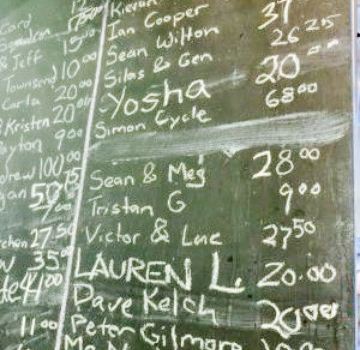 Card
& Jeff 15
Townsend 10.00
Carla 20.00
& Kristen 20.00
ayton 9.00
drew 100.00
gan 50
27.50
35
41.00
11.00
Kieran
Ian Cooper 37
Sean Wilton 26.25
Silas & Gen
Yosha 20.00
Simon Cycle 68.00
Sean & Meg 28.00
Tristan G 9.00
Victor & Luc 27.50
LAUREN L. 20.00
Dave Kelch 20.00
Peter Gilmore